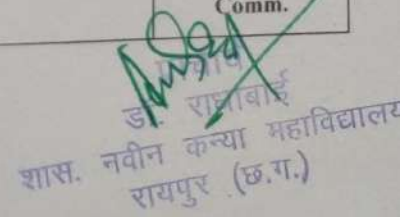 Comm.
डॉ. राधाबाई
शास. नवीन कन्या महाविद्यालय
रायपुर (छ.ग.)